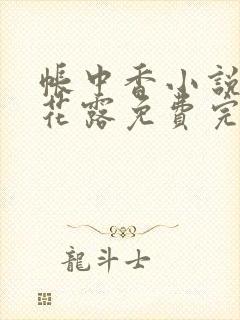 帳中香小說
花露免費完
龍斗士